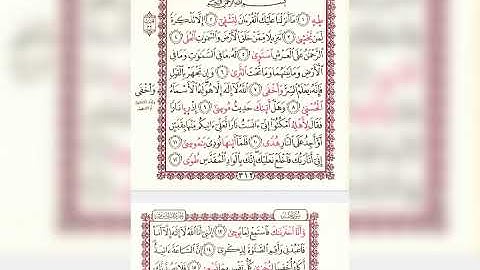 بِسْمِ اللَّهِ الرَّحْمَٰنِ الرَّحِيمِ
طه ١ مَا أَنزَلْنَا عَلَيْكَ الْقُرْءَانَ لِتَشْقَىٰ ٢ إِلَّا تَذْكِرَةً
لِّمَن يَخْشَىٰ ٣ تَنزِيلًا مِّمَّنْ خَلَقَ الْأَرْضَ وَالسَّمَٰوَٰتِ الْعُلَى ٤
الرَّحْمَٰنُ عَلَى الْعَرْشِ اسْتَوَىٰ ٥ لَهُ مَا فِي السَّمَٰوَٰتِ وَمَا فِي
الْأَرْضِ وَمَا بَيْنَهُمَا وَمَا تَحْتَ الثَّرَىٰ ٦ وَإِن تَجْهَرْ بِالْقَوْلِ
فَإِنَّهُ يَعْلَمُ السِّرَّ وَأَخْفَى ٧ اللَّهُ لَا إِلَٰهَ إِلَّا هُوَ لَهُ الْأَسْمَاءُ
الْحُسْنَىٰ ٨ وَهَلْ أَتَىٰكَ حَدِيثُ مُوسَىٰ ٩ إِذْ رَءَا نَارًا
فَقَالَ لِأَهْلِهِ امْكُثُوا إِنِّي ءَانَسْتُ نَارًا لَّعَلِّي ءَاتِيكُم مِّنْهَا بِقَبَسٍ
أَوْ أَجِدُ عَلَى النَّارِ هُدًى ١٠ فَلَمَّا أَتَىٰهَا نُودِيَ يَٰمُوسَىٰ ١١
إِنِّي أَنَا رَبُّكَ فَاخْلَعْ نَعْلَيْكَ إِنَّكَ بِالْوَادِ الْمُقَدَّسِ طُوًى ١٢
وَأَخْفَى
٣١٢
وَأَنَا اخْتَرْتُكَ فَاسْتَمِعْ لِمَا يُوحَىٰ ١٣ إِنَّنِي أَنَا اللَّهُ لَا إِلَٰهَ إِلَّا أَنَا
فَاعْبُدْنِي وَأَقِمِ الصَّلَوٰةَ لِذِكْرِي ١٤ إِنَّ السَّاعَةَ ءَاتِيَةٌ
أَكَادُ أُخْفِيهَا لِتُجْزَىٰ كُلُّ نَفْسٍ بِمَا تَسْعَىٰ ١٥ فَلَا يَصُدَّنَّكَ